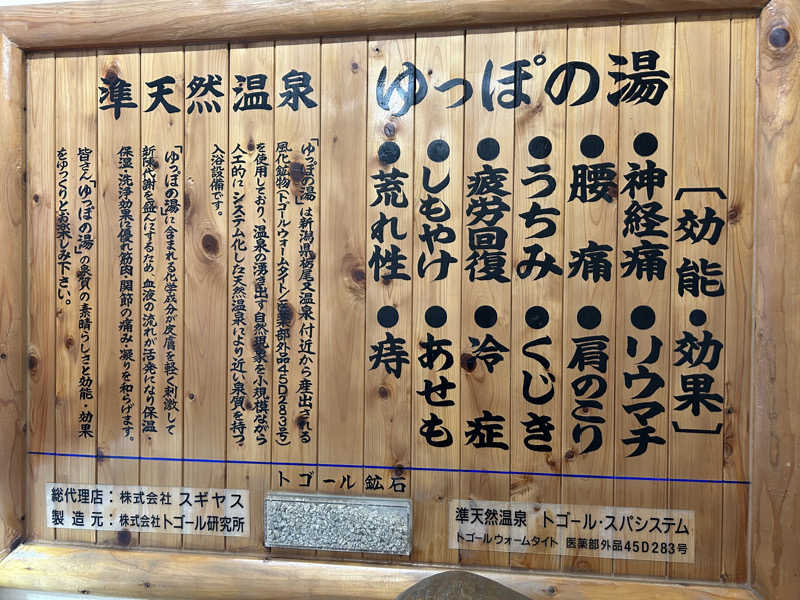 ゆっぽの湯
〔効能・効果〕
●神経痛 ●リウマチ
●腰痛 ●肩のこり
●うちみ ●くじき
●疲労回復 ●冷症
●しもやけ ●あせも
●荒れ性 ●痔
準天然温泉
「ゆっぽの湯」は新潟県栃尾又温泉付近から産出される
風化鉱物(トゴールウォームタイト)(医薬部外品45D283号)
を使用しており、温泉の湧き出す自然現象を小規模ながら
人工的にシステム化した天然温泉により近い泉質を持つ
入浴設備です。
「ゆっぽの湯」に含まれる化学成分が皮膚を軽く刺激して
新陳代謝を盛んにするため、血液の流れが活発になり保温・
保湿・洗浄効果に優れ筋肉・関節の痛み・凝りを和らげます。
皆さん「ゆっぽの湯」の泉質の素晴らしさと効能・効果
をゆっくりとお楽しみ下さい。
トゴール鉱石
総代理店：株式会社 スギヤス
製造元：株式会社トゴール研究所
準天然温泉 トゴール・スパシステム
トゴールウォームタイト 医薬部外品45D283号